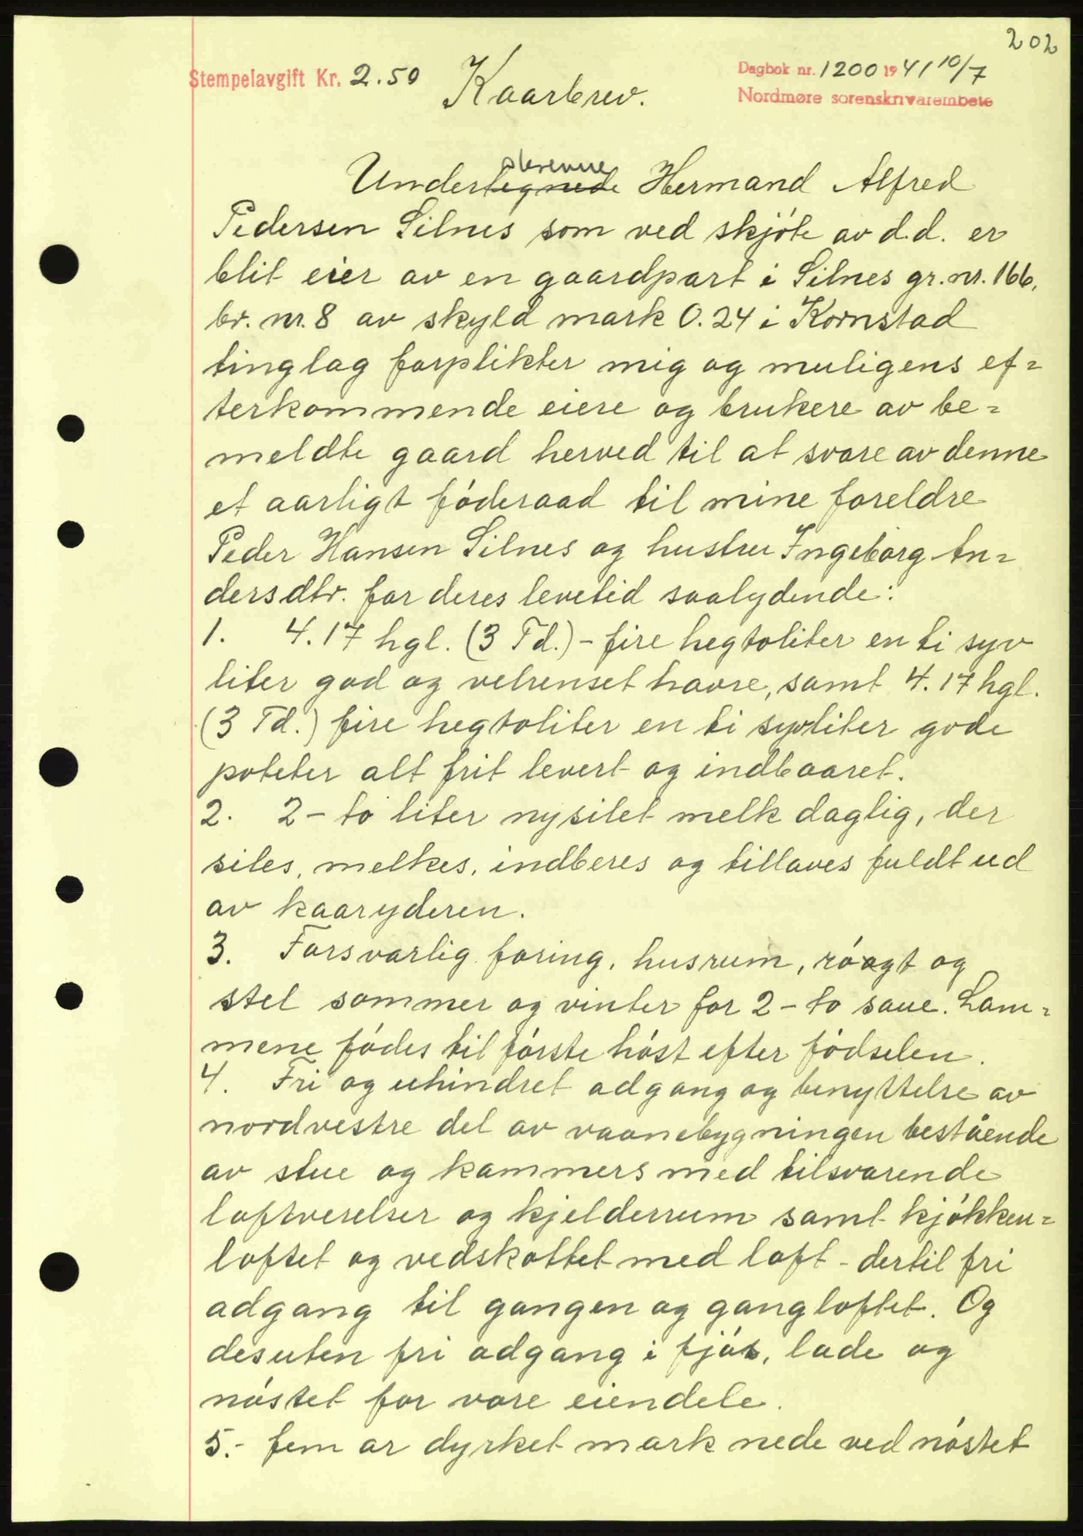 202
Stempelavgift Kr. 2.50
Kaarbrev.
Dagbok nr. 1200 1941 10/7
Nordmøre sorenskrivarembete
Undertegnede Hermand Alfred
Pedersen Silnes som ved skjöte av d.d. er
blit eier av en gaardpart i Silnes gr. nr. 166,
br. nr. 8 av skyld mark 0.24 i Kornstad
tinglag forplikter mig og muligens ef=
terkommende eiere og brukere av be=
meldte gaard herved til at svare av denne
et aarligt föderaad til mine foreldre
Peder Hansen Silnes og hustru Ingeborg An=
dersdtr. for deres levetid saalydende:
1. 4.17 hgl. (3 Td.) - fire hegtoliter en ti syv
liter god og velrenset havre, samt 4.17 hgl.
(3 Td.) fire hegtoliter en ti syvliter gode
poteter alt frit levert og indbaaret.
2. 2 - to liter nysilet melk daglig, der
siles, melkes, indberes og tillaves fuldt ud
av kaaryderen.
3. Forsvarlig foring, husrum, röagt og
stel sommer og vinter for 2 - to saue. Lam=
mene födes til förste höst efter födselen.
4. Fri og uhindret adgang og benyttelse av
nordvestre del av vaanebygningen bestående
av stue og kammers med tilsvarende
loftverelser og kjelderrum samt kjökken=
loftet og vedskottet med loft - dertil fri
adgang til gangen og gangloftet. Og
desuten fri adgang i fjös, lade og
nöstet for vore eiendele.
5. - fem ar dyrket mark nede ved nöstet